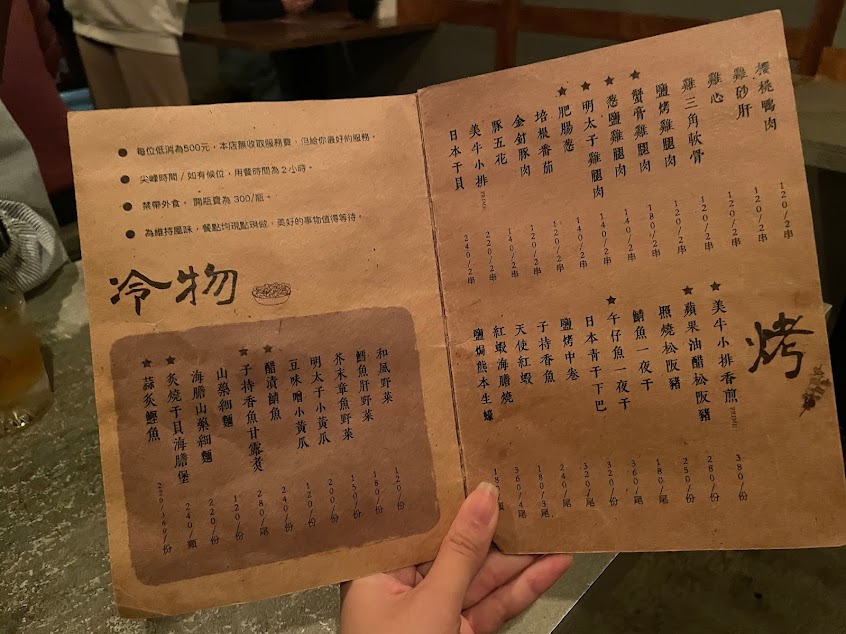 每位低消為500元，本店無收取服務費，但給你最好的服務。
尖峰時間 / 如有候位，用餐時間為2小時。
禁帶外食。 開瓶費為 300/瓶。
為維持風味，餐點均現點現做，美好的事物值得等待。
冷物
和風野菜 120/份
鱈魚肝野菜 180/份
芥末章魚野菜 150/份
明太子小黃瓜 200/份
豆味噌小黃瓜 120/份
★醋漬鯖魚 240/份
★子持香魚甘露煮 280/尾
山藥細麵 120/份
海膽山藥細麵 220/份
★炙燒干貝海膽堡 240/顆
★蒜炙鰹魚
烤
櫻桃鴨肉 120/2串
雞砂肝 120/2串
雞心 120/2串
雞三角軟骨 120/2串
鹽烤雞腿肉 120/2串
★蟹膏雞腿肉 180/2串
★蔥鹽雞腿肉 140/2串
★明太子雞腿肉 140/2串
★肥腸蔥 140/2串
培根番茄 120/2串
金針豚肉 120/2串
豚五花 140/2串
美牛小排PRIME 220/2串
日本干貝 240/2串
★美牛小排香煎PRIME 380/份
★蘋果油醋松阪豬 280/份
照燒松阪豬 250/份
鯖魚一夜干 180/尾
★午仔魚一夜干 360/尾
日本青干下巴 320/份
鹽烤中卷 240/尾
子持香魚 180/3尾
天使紅蝦 360/4尾
紅蝦海膽燒
鹽焗熊本生蠔